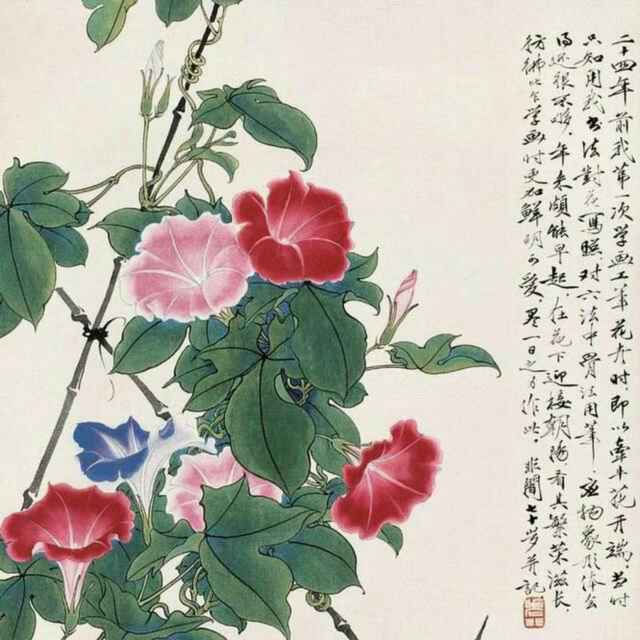 二十四年前我第一次学画工笔花卉时，即以牵牛花开端，当时
只知用我书法对花写照，对六法中骨法用笔，应物象形体会
得还很不够，年来颇能早起，在花下迎接朝阳，看其繁荣滋长
仿佛比今学画时更加鲜明可爱，尽一日之力作此。非闇七十岁并记